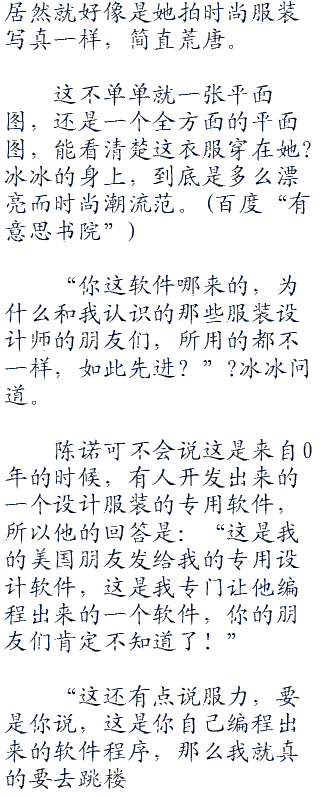 居然就好像是她拍时尚服装
写真一样，简直荒唐。
这不单单就一张平面
图，还是一个全方面的平面
图，能看清楚这衣服穿在她?
冰冰的身上，到底是多么漂
亮而时尚潮流范。(百度“有
意思书院”)
“你这软件哪来的，为
什么和我认识的那些服装设
计师的朋友们，所用的都不
一样，如此先进？”?冰冰问
道。
陈诺可不会说这是来自0
年的时候，有人开发出来的
一个设计服装的专用软件，
所以他的回答是：“这是我
的美国朋友发给我的专用设
计软件，这是我专门让他编
程出来的一个软件，你的朋
友们肯定不知道了！”
“这还有点说服力，要
是你说，这是你自己编程出
来的软件程序，那么我就真
的要去跳楼